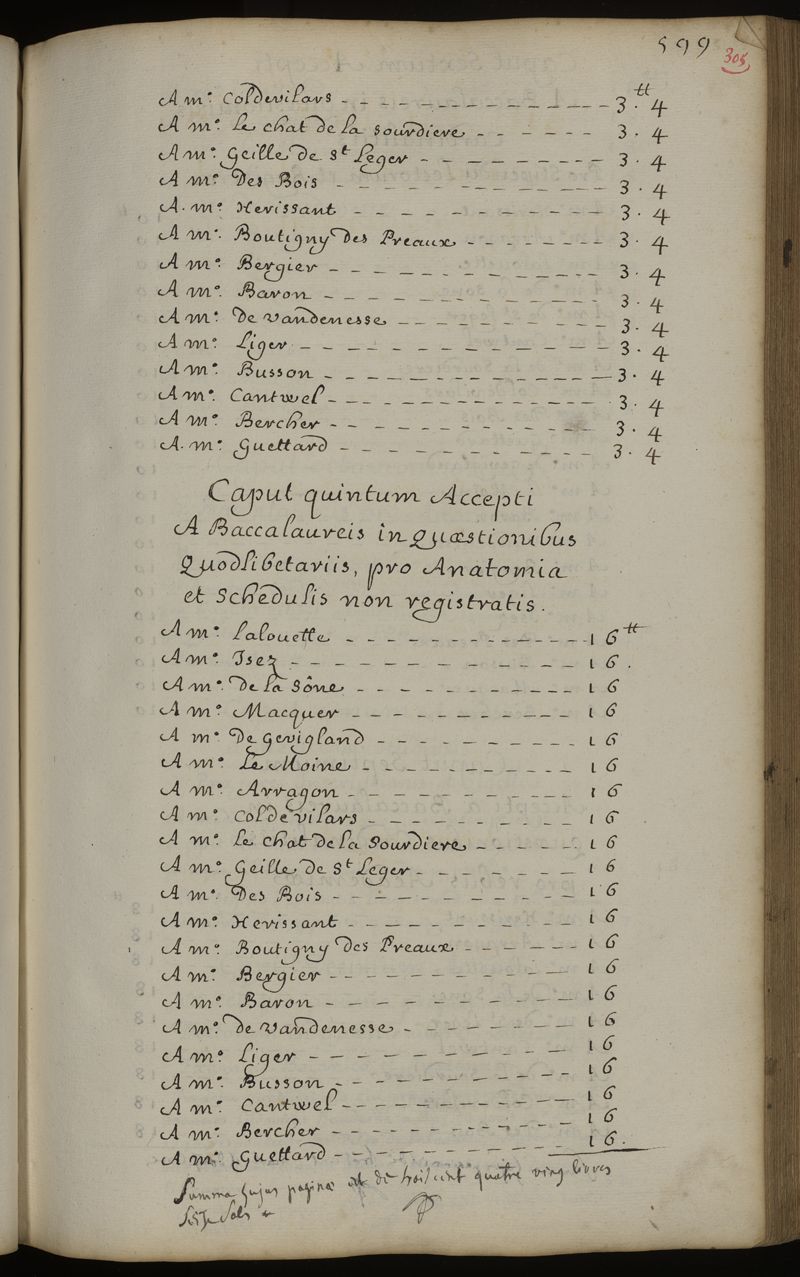 599
305
A mo. Coldevilars - - - - - - - - - - - - - 3.tt 4
A mo. Le chat de la sourdiere - - - - - - 3. 4
A mo. Geille de St Leger - - - - - - - - - 3. 4
A mo. Des Bois - - - - - - - - - - - - 3. 4
A. mo. Herissant - - - - - - - - - - - 3. 4
A mo. Boutigny Des Preaux - - - - - - - 3. 4
A mo. Bergier - - - - - - - - - - - - - 3. 4
A mo. Baron - - - - - - - - - - - - - 3. 4
A mo. De Vandenesse - - - - - - - - - - 3. 4
A mo. Liger - - - - - - - - - - - - - - 3. 4
A mo. Busson - - - - - - - - - - - - - 3. 4
A mo. Cantwel - - - - - - - - - - - - - 3. 4
A mo. Bercher - - - - - - - - - - - - - 3. 4
A. mo. Guettard - - - - - - - - - - - - 3. 4
Caput quintum Accepti
A Baccalaureis in quæstionibus
Quodlibetariis, pro Anatomia
et Schedulis non registratis.
A mo. Lalouette - - - - - - - - - - - - 16tt
A mo. Isez - - - - - - - - - - - - 16.
A mo. De la Sône - - - - - - - - - - 16
A mo. Macquer - - - - - - - - - - - 16
A mo. De Gevigland - - - - - - - - - 16
A mo. Le Moine - - - - - - - - - - 16
A mo. Arragon - - - - - - - - - - - 16
A mo. Coldevilars - - - - - - - - - - 16
A mo. Le chat de la Sourdiere - - - - - 16
A mo. Geille de St Leger - - - - - - - 16
A mo. Des Bois - - - - - - - - - - - 16
A mo. Herissant - - - - - - - - - - 16
A mo. Boutigny Des Preaux - - - - - - 16
A mo. Bergier - - - - - - - - - - - 16
A mo. Baron - - - - - - - - - - - 16
A mo. de Vandenesse - - - - - - - - 16
A mo. Liger - - - - - - - - - - - 16
A mo. Busson - - - - - - - - - - - 16
A mo. Cantwel - - - - - - - - - - - 16
A mo. Bercher - - - - - - - - - - - 16
A mo. Guettard - - - - - - - - - - - 16.
Summa hujus paginæ est de trois cent quatre ving livres
seize sols